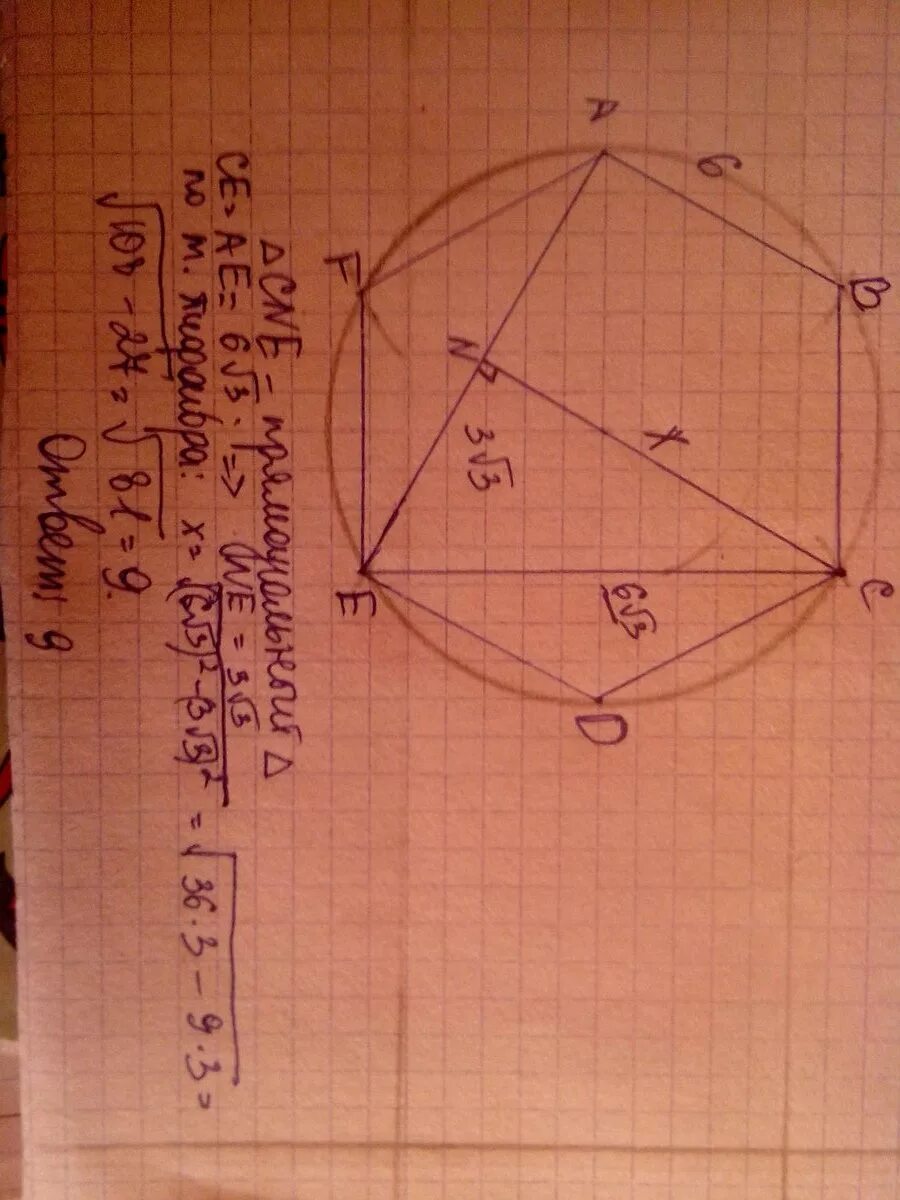 A
6
B
F
N
3√3
X
C
6√3
E
D
△CNE - прямоугольный △
CE = AE = 6√3. => NE = 3√3
по т. пифагора: x = √(6√3)² - (3√3)² = √36·3 - 9·3 =
√108 - 27 = √81 = 9.
Ответ: 9